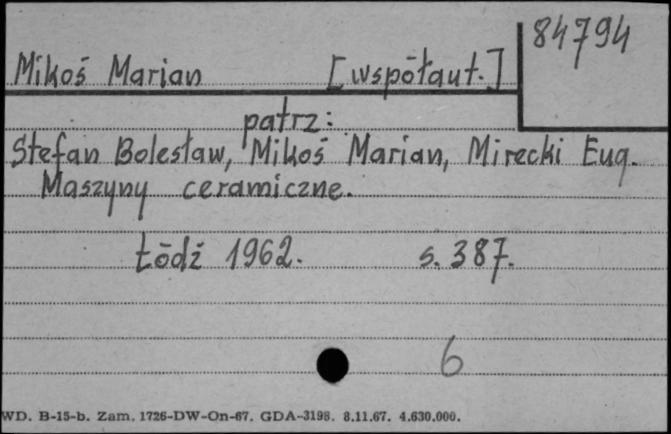 84794
Mikoś Marian [współaut.]
patrz:
Stefan Bolesław, Mikoś Marian, Mirecki Eug.
Maszyny ceramiczne.
Łódź 1962. s. 387.
6
WD. B-15-b. Zam. 1726-DW-On-67. GDA-3198. 8.11.67. 4.630.000.